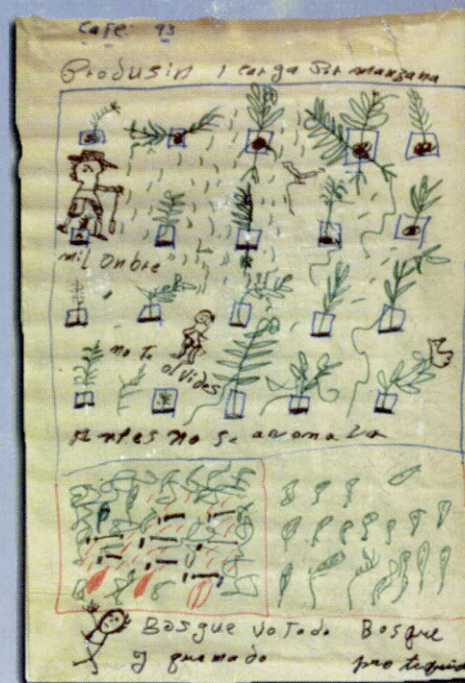 Cafe. 93
Produsin 1 carga por manzana
mil onbre
no te
olvides
Antes no se avonava
Bosque votado Bosque
y quemado protegido